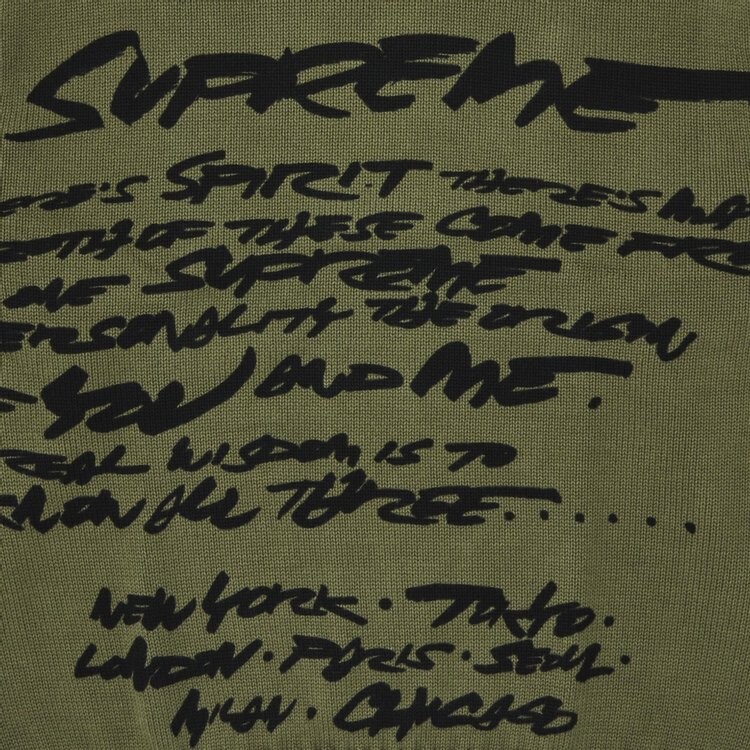 SUPREME
ERE'S SPIRIT THERE'S MA
OTH OF THESE COME FRO
ONE SUPREME
ERSONALITY THE ORIGIN
F YOU AND ME.
REAL WISDOM IS TO
KNOW ALL THREE.......
NEW YORK. TOKYO.
LONDON. PARIS. SEOUL.
MILAN. CHICAGO